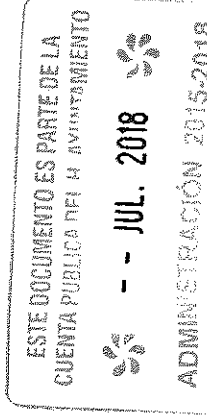 ESTE DOCUMENTO ES PARTE DE LA
CUENTA PUBLICA DEL H. AYUNTAMIENTO
- - JUL. 2018
ADMINISTRACIÓN 2015-2018